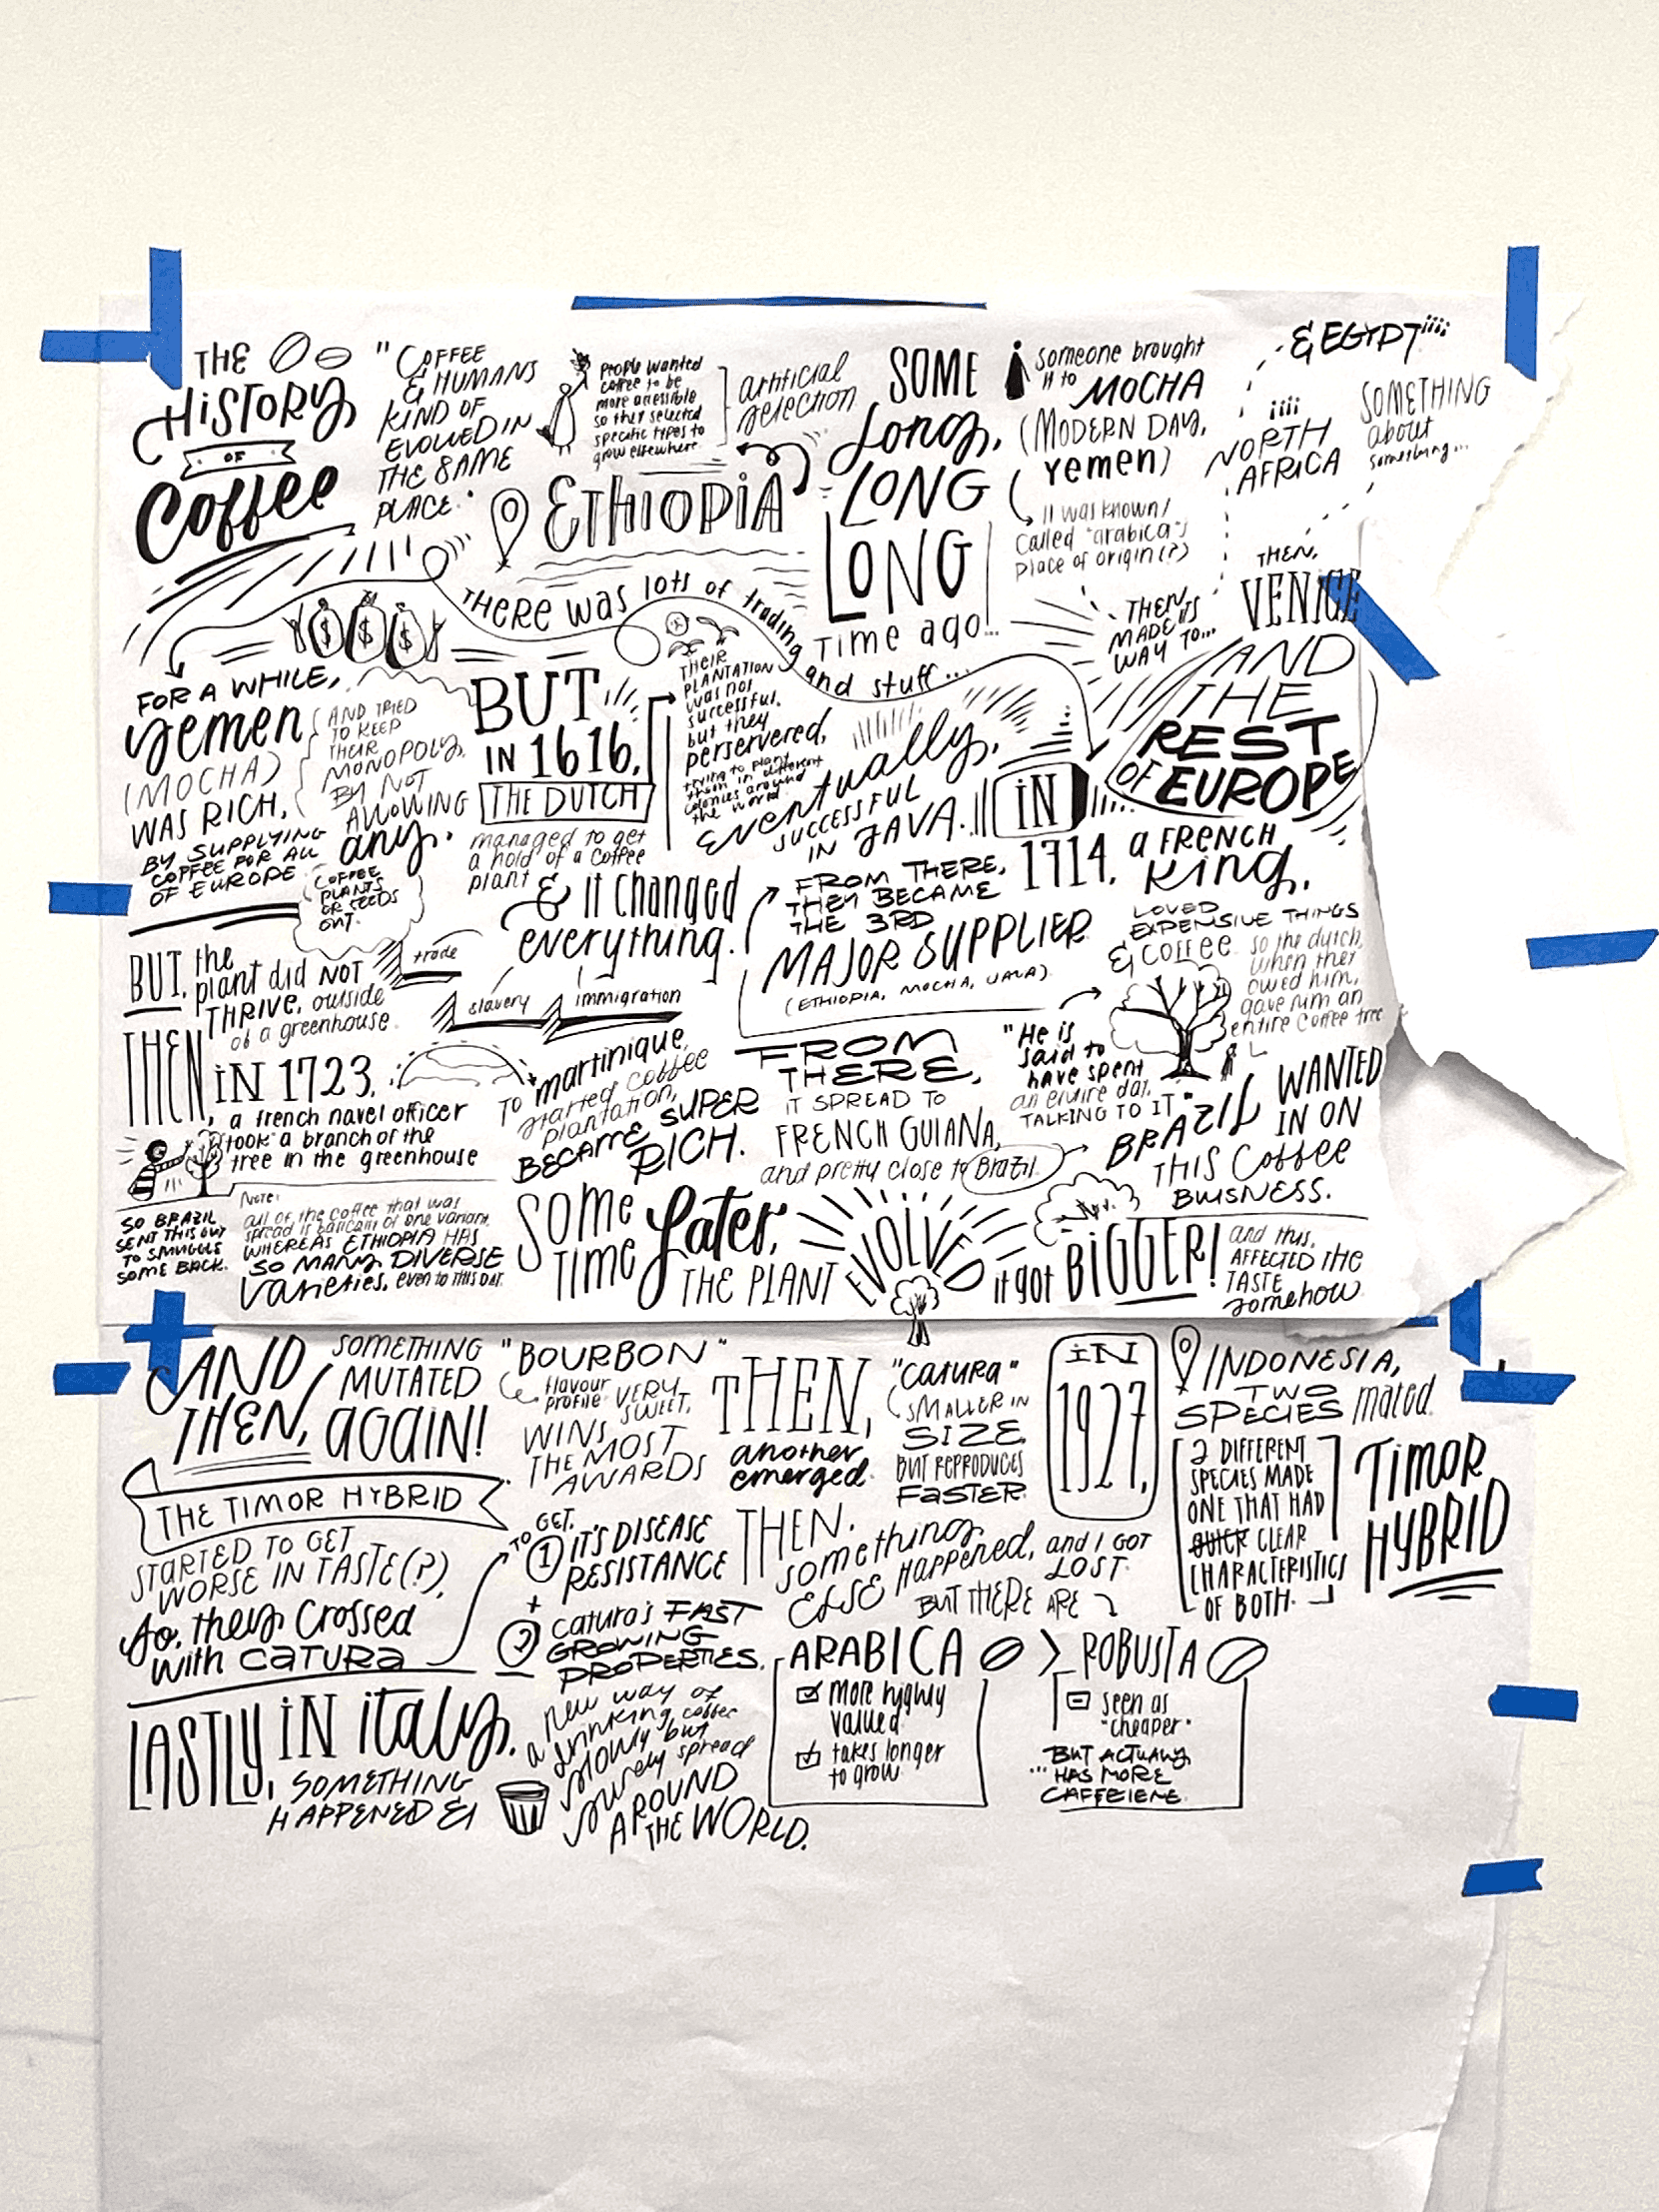 THE
HISTORY
OF
Coffee
"COFFEE
& HUMANS
KIND OF
EVOLVED IN
THE SAME
PLACE."
people wanted
coffee to be
more accessible
so they selected
specific types to
grow elsewhere
artificial
selection
ETHIOPIA
SOME
Long,
LONG
LONG
TIME ago...
Someone brought
it to MOCHA
(MODERN DAY,
Yemen)
it was known/
called "arabica"s
place of origin(?)
& EGYPT
NORTH
AFRICA
SOMETHING
about
something...
THERE WAS lots of trading and stuff...
THEN
MADE ITS
WAY TO...
THEN,
VENICE
AND
THE
REST
OF EUROPE
$ $ $
FOR A WHILE,
Yemen
(MOCHA)
WAS RICH,
BY SUPPLYING
COFFEE FOR ALL
OF EUROPE
AND TRIED
TO KEEP
THEIR
MONOPOLY,
BY NOT
ALLOWING
any.
COFFEE
PLANTS
OR SEEDS
OUT.
BUT
IN 1616,
THE DUTCH
managed to get
a hold of a coffee
plant
THEIR
PLANTATION
was not
successful.
but they
perservered,
trying to plant
them in different
colonies around
the world.
Eventually,
SUCCESSFUL
IN JAVA.
& it changed
everything.
trade
slavery
immigration
FROM THERE,
THEY BECAME
THE 3RD
MAJOR SUPPLIER
(ETHIOPIA, MOCHA, JAVA)
IN
1714, a FRENCH
King,
LOVED
EXPENSIVE THINGS
& COFFEE. so the dutch,
when they
owed him,
gave him an
entire coffee tree
"He is
said to
have spent
an entire day,
TALKING TO IT"
BUT, the
plant did NOT
THRIVE, outside
of a greenhouse.
THEN, IN 1723,
a french navel officer
took a branch of the
tree in the greenhouse
TO martinique,
started coffee
plantation,
BECAME SUPER
RICH.
FROM
THERE,
IT SPREAD TO
FRENCH GUIANA,
and pretty close to Brazil.
BRAZIL WANTED
IN ON
THIS Coffee
BUISNESS.
SO BRAZIL
SENT THIS GUY
TO SMUGGLE
SOME BACK.
Note:
all of the coffee that was
spread is basically of one variant,
WHEREAS ETHIOPIA HAS
SO MANY DIVERSE
Varieties, even to this day.
SOME
TIME Later,
THE PLANT EVOLVED
it got BIGGER!
and thus,
AFFECTED THE
TASTE
somehow.
AND
THEN,
SOMETHING
MUTATED
AGAIN!
"BOURBON"
flavour
profile VERY
SWEET,
WINS
THE MOST
AWARDS
THEN,
another
emerged.
"Catura"
SMALLER IN
SIZE
BUT REPRODUCES
FASTER.
IN
1927,
INDONESIA,
TWO
SPECIES mated.
2 DIFFERENT
SPECIES MADE
ONE THAT HAD
QUICK CLEAR
CHARACTERISTICS
OF BOTH.
TIMOR
HYBRID
THE TIMOR HYBRID
STARTED TO GET
WORSE IN TASTE(?),
So, they crossed
with CATURA
TO GET,
1 IT'S DISEASE
RESISTANCE
+
2 Catura's FAST
GROWING
PROPERTIES.
THEN.
something
ELSE HAPPENED, and I GOT
LOST.
BUT THERE ARE
ARABICA > ROBUSTA
more highly
valued
takes longer
to grow.
seen as
"cheaper"
BUT ACTUALLY,
... HAS MORE
CAFFEIENE.
LASTLY, IN italy,
SOMETHING
HAPPENED &
a new way of
drinking coffee
slowly but
surely spread
AROUND
THE WORLD.